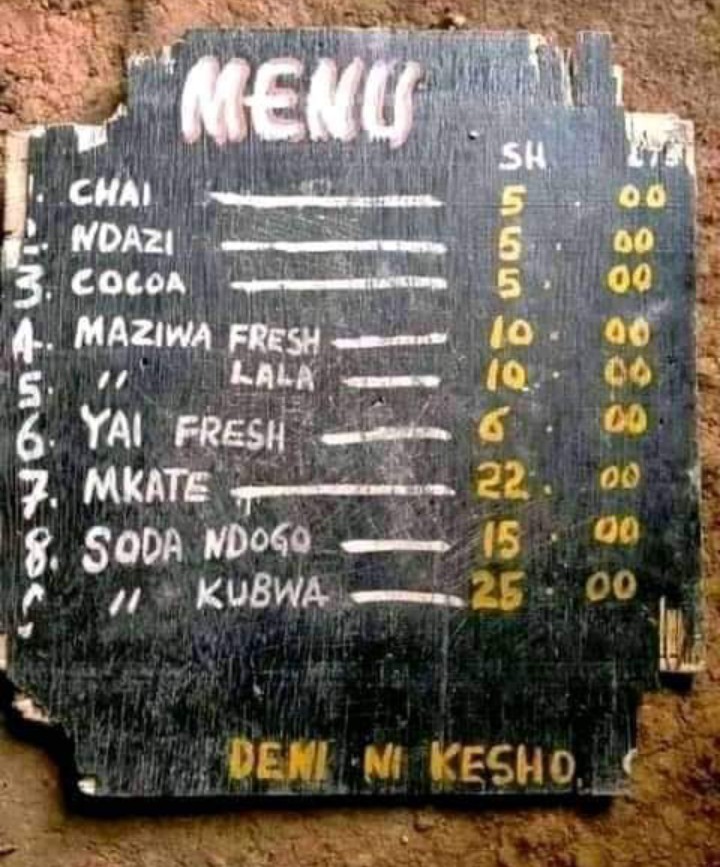 MENU
SH CTS
1. CHAI 5 . 00
2. NDAZI 5 . 00
3. COCOA 5 . 00
4. MAZIWA FRESH 10 . 00
5. " LALA 10 . 00
6. YAI FRESH 6 . 00
7. MKATE 22 . 00
8. SODA NDOGO 15 . 00
" KUBWA 25 . 00
DENI NI KESHO.